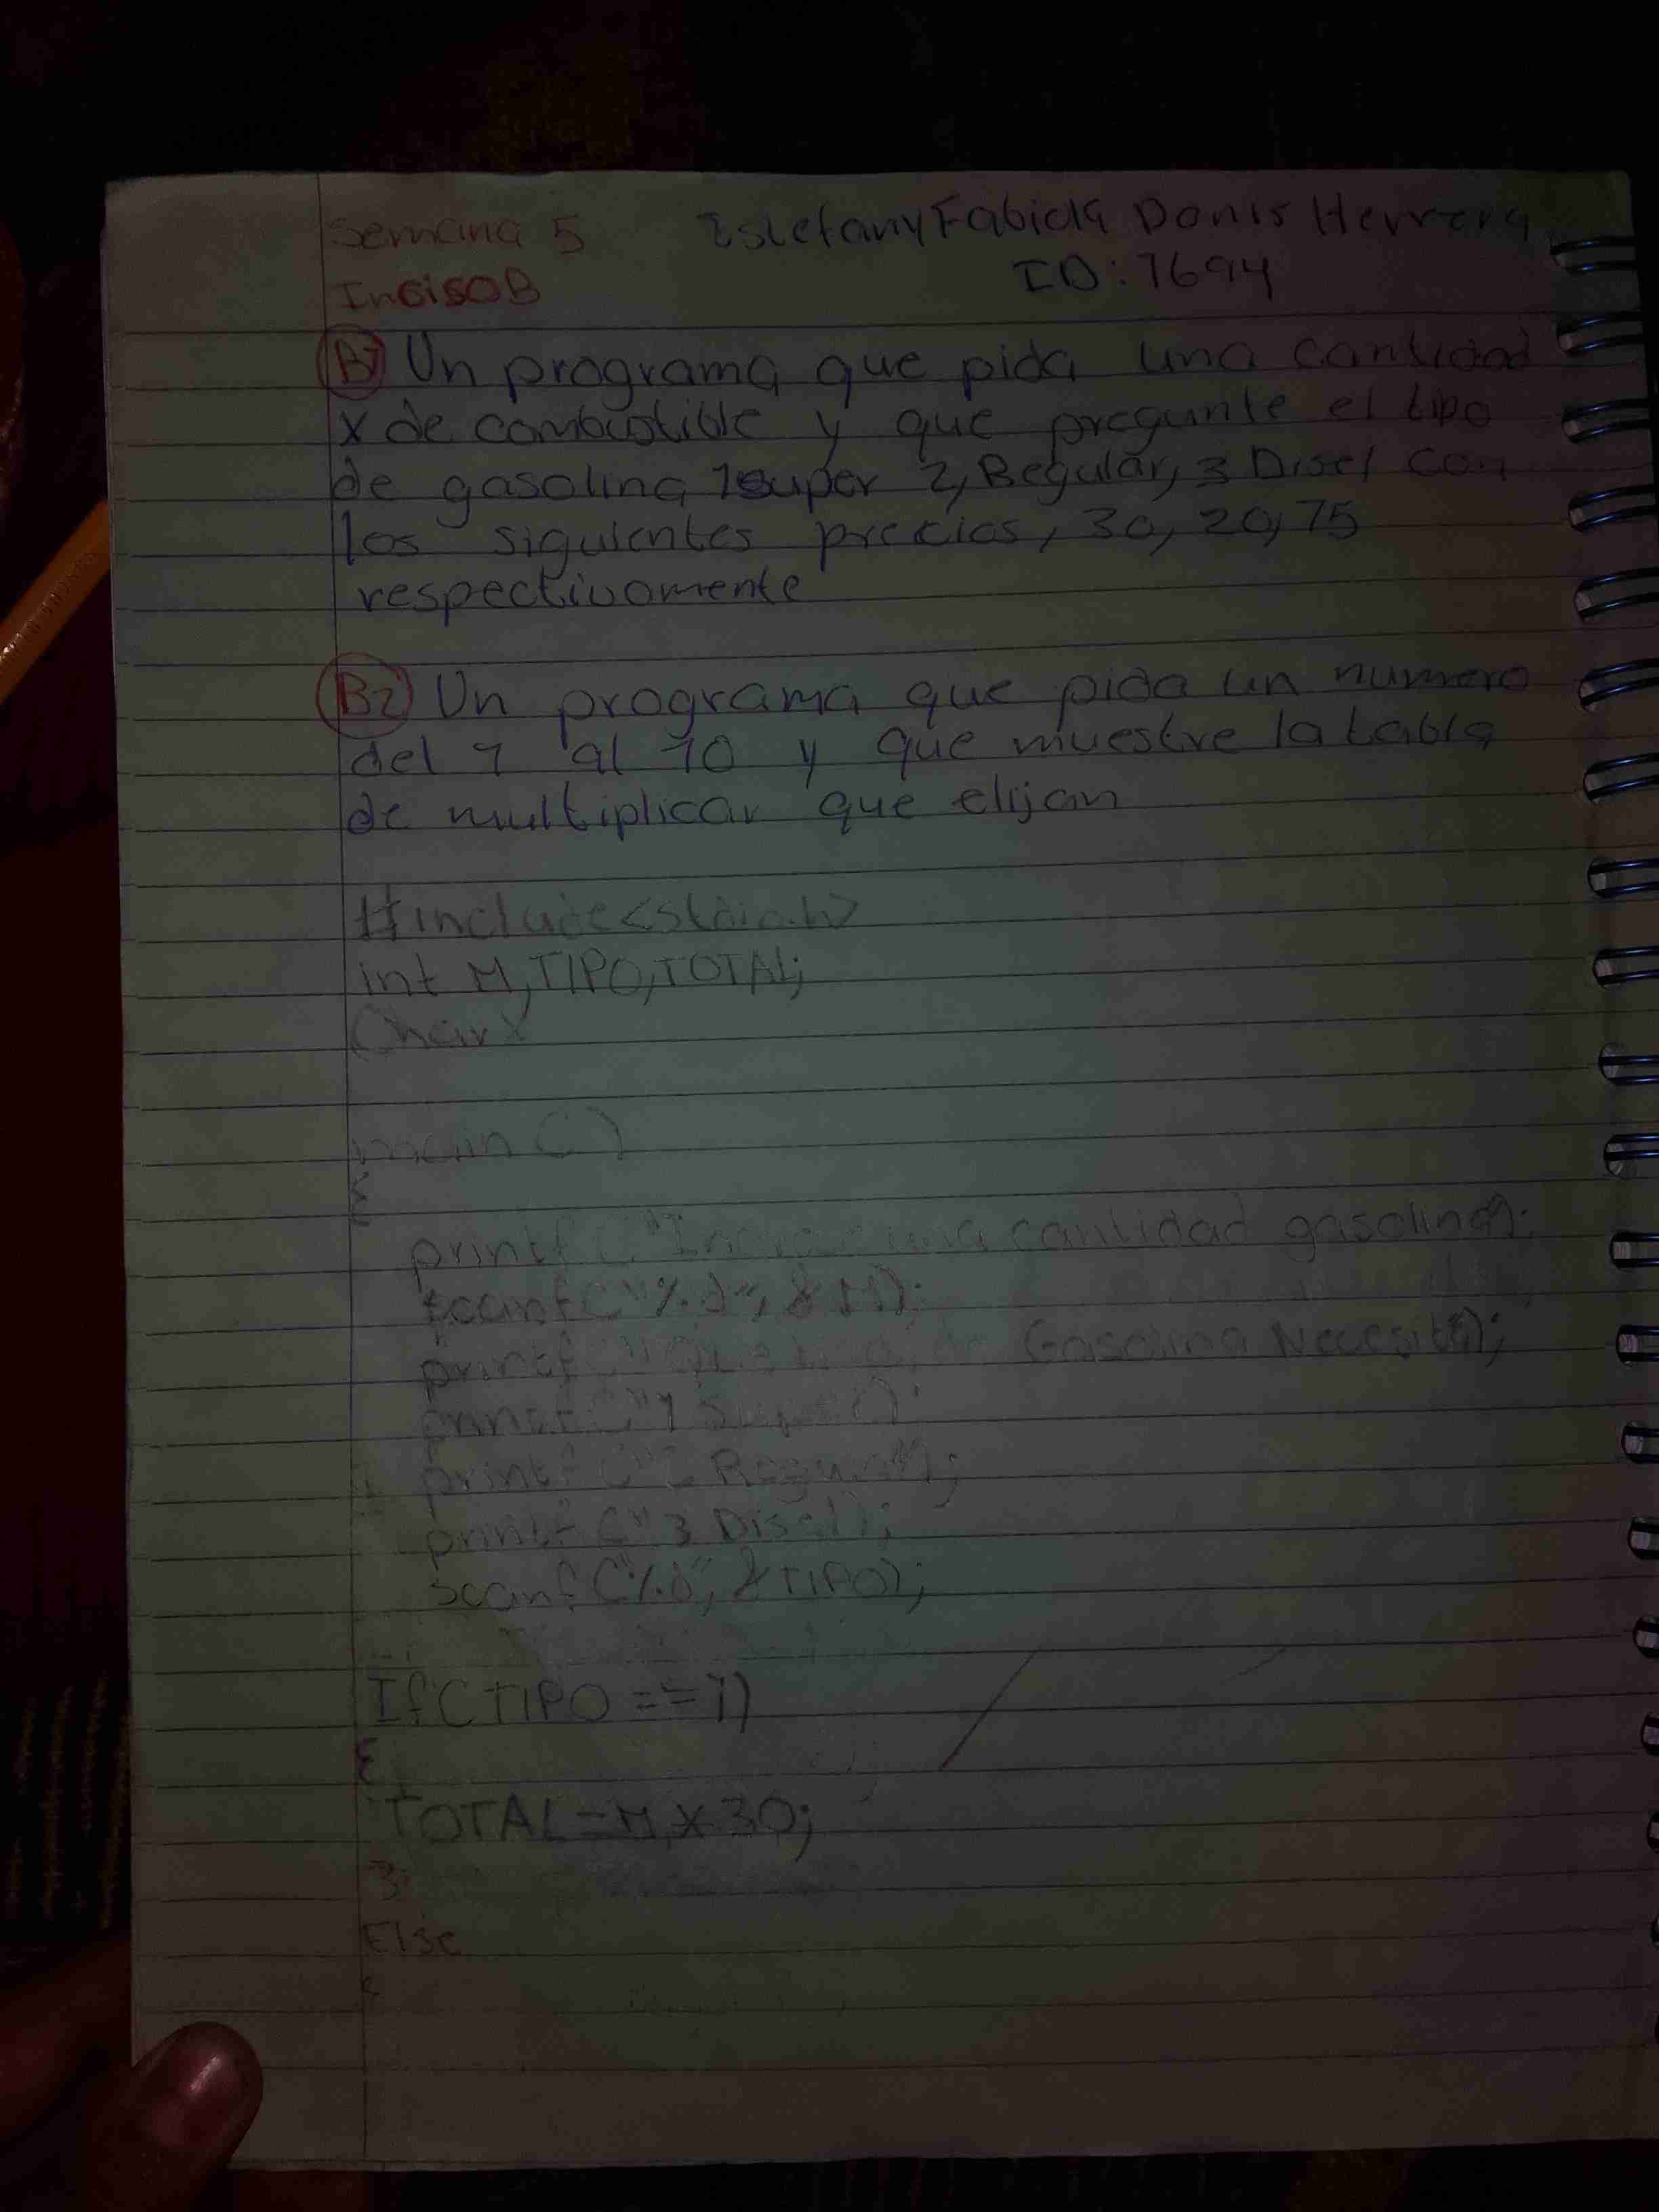 Semana 5 Estefany Fabiola Donis Herrera
InsisoB ID: 1694
B1 Un programa que pida una cantidad
x de combustible y que pregunte el tipo
de gasolina 1super 2, Regular, 3 Disel con
los siguientes precios, 30, 20, 15
respectivamente
B2 Un programa que pida un numero
del 1 al 10 y que muestre la tabla
de multiplicar que elijan
#include<stdio.h>
int M,TIPO,TOTAL;
Char x
main()
{
printf("Ingrese una cantidad gasolina");
scanf("%d", &M);
printf(" Gasolina Necesita");
printf("1 Super");
printf("2 Regular");
printf("3 Disel");
scanf("%d", &TIPO);
If(TIPO ==1)
{
TOTAL=M x 30;
}
Else
{